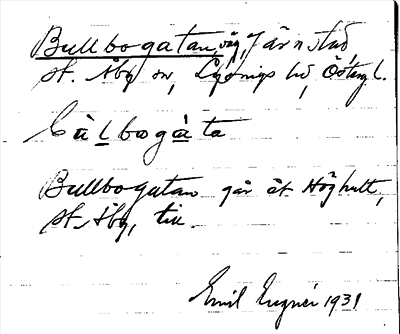 Bullbogatan, väg, Järnstad,
St. Åby sn, Lysings hd, Östergl.
bùlbogàta
Bullbogatan går åt Höghult,
St. Åby, till.
Emil 1931